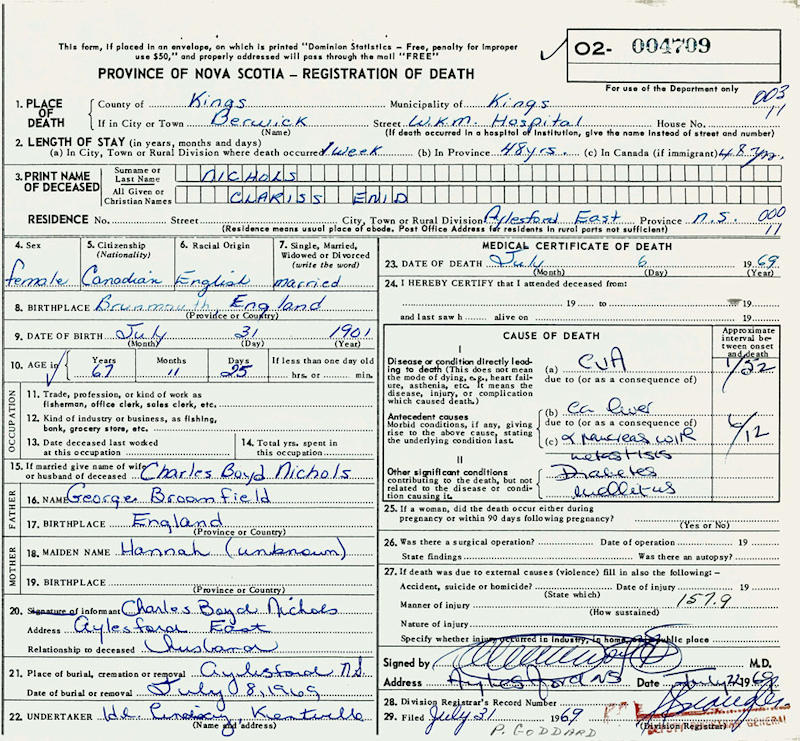 This form, if placed in an envelope, on which is printed "Dominion Statistics - Free, penalty for improper
use $50," and properly addressed will pass through the mail "FREE"
O2- 004709
For use of the Department only
PROVINCE OF NOVA SCOTIA — REGISTRATION OF DEATH
003
11
1. PLACE OF DEATH County of Kings Municipality of Kings
If in City or Town Berwick Street W.K.M. Hospital House No.
(Name) (If death occurred in a hospital or institution, give the name instead of street and number)
2. LENGTH OF STAY (in years, months and days)
(a) In City, Town or Rural Division where death occurred 1 week (b) In Province 48 yrs. (c) In Canada (if immigrant) 48 yrs.
3. PRINT NAME OF DECEASED Surname or Last Name NICHOLS
All Given or Christian Names CLARISS ENID
RESIDENCE No. Street City, Town or Rural Division Aylesford East Province N.S. 000
11
(Residence means usual place of abode. Post Office Address for residents in rural parts not sufficient)
4. Sex female
5. Citizenship (Nationality) Canadian
6. Racial Origin English
7. Single, Married, Widowed or Divorced (write the word) married
8. BIRTHPLACE England
(Province or Country)
9. DATE OF BIRTH July 31 1901
(Month) (Day) (Year)
10. AGE in Years 67 Months 11 Days 25 If less than one day old
hrs. or min.
OCCUPATION
11. Trade, profession, or kind of work as
fisherman, office clerk, sales clerk, etc.
12. Kind of industry or business, as fishing,
bank, grocery store, etc.
13. Date deceased last worked
at this occupation
14. Total yrs. spent in
this occupation
15. If married give name of wife
or husband of deceased Charles Boyd Nichols
FATHER
16. NAME George Broomfield
17. BIRTHPLACE England
(Province or Country)
MOTHER
18. MAIDEN NAME Hannah (unknown)
19. BIRTHPLACE
(Province or Country)
20. Signature of informant Charles Boyd Nichols
Address Aylesford East
Relationship to deceased Husband
21. Place of burial, cremation or removal Aylesford NS
Date of burial or removal July 8, 1969
22. UNDERTAKER Lindsay, Kentville
(Name and address)
MEDICAL CERTIFICATE OF DEATH
23. DATE OF DEATH July 6 1969
(Month) (Day) (Year)
24. I HEREBY CERTIFY that I attended deceased from:
19 to 19
and last saw h alive on 19
CAUSE OF DEATH
Approximate interval between onset and death
I
Disease or condition directly leading to death (This does not mean the mode of dying, e.g., heart failure, asthenia, etc. It means the disease, injury, or complication which caused death.)
(a) CVA 1/52
due to (or as a consequence of)
Antecedent causes
Morbid conditions, if any, giving rise to the above cause, stating the underlying condition last.
(b) Ca liver
due to (or as a consequence of)
(c) & pancreas with 6/12
metastisis
II
Other significant conditions
contributing to the death, but not related to the disease or condition causing it.
Diabetes
mellitus
25. If a woman, did the death occur either during
pregnancy or within 90 days following pregnancy?
(Yes or No)
26. Was there a surgical operation? Date of operation 19
State findings Was there an autopsy?
27. If death was due to external causes (violence) fill in also the following: –
Accident, suicide or homicide? Date of injury 19
(State which)
Manner of injury 157.9
(How sustained)
Nature of injury
Specify whether injury occurred in industry, in home, or public place
Signed by M.D.
Address Aylesford NS Date July 22 1969
28. Division Registrar's Record Number
29. Filed July 31 1969
(Division Registrar)
P. GODDARD
DEPUTY REGISTRAR GENERAL